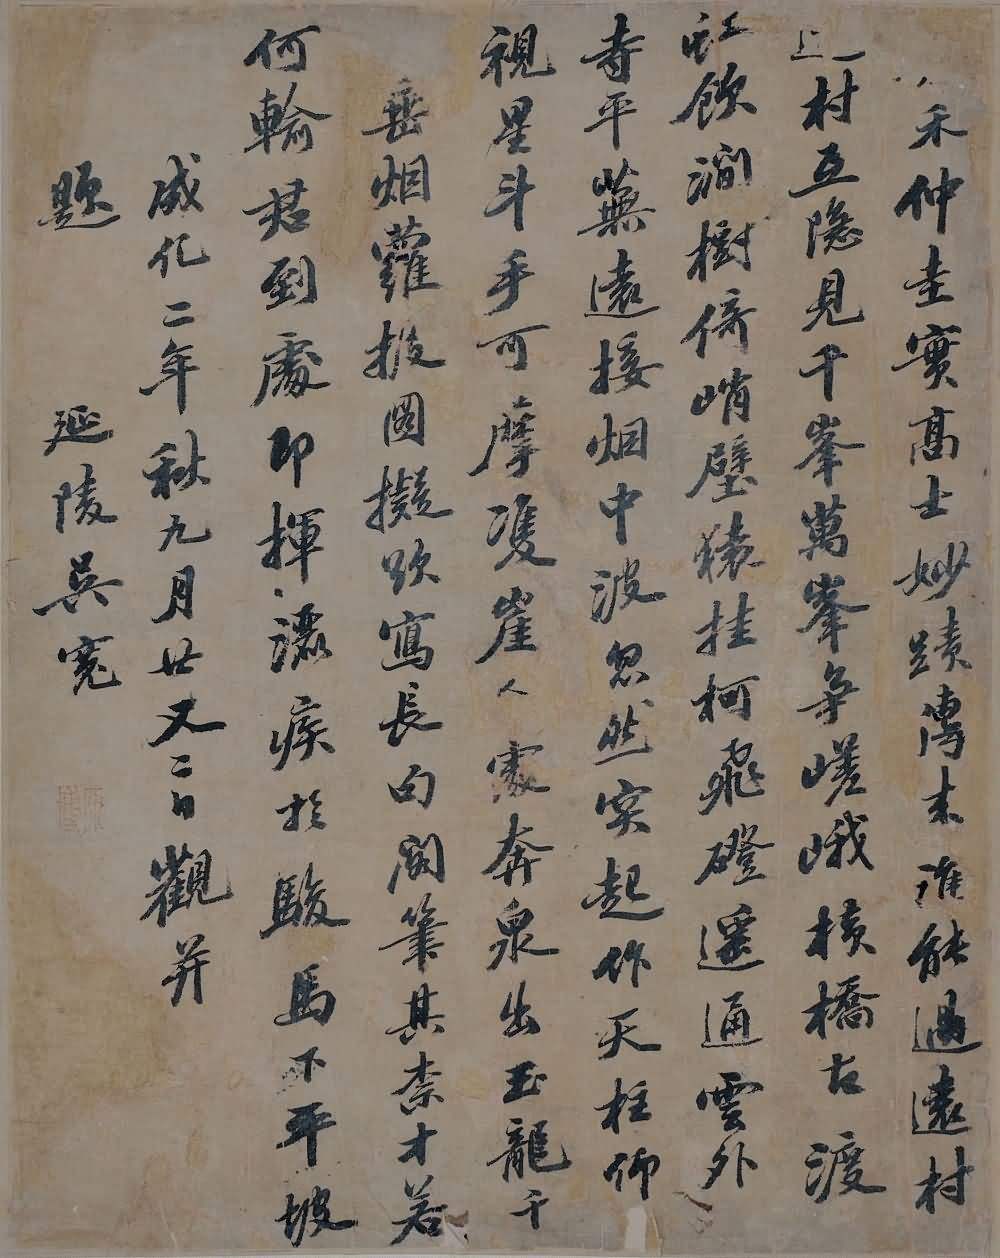 禾仲圭實高士妙蹟傳来誰能過遠村
村互隐見千峯萬峯争嵯峨横橋古渡
虹飲澗樹倚峭壁猿挂柯飛磴遥通雲外
寺平蕪遠接烟中波忽然突起作天柱仰
視星斗手可摩崖人奔泉出玉龍千
垂烟蘿披圖擬欲寫長句閣筆其柰才若
何輸君到處即揮灑疾於駿馬下平坡
成化二年秋九月廿又二日觀并
題 延陵吳寬